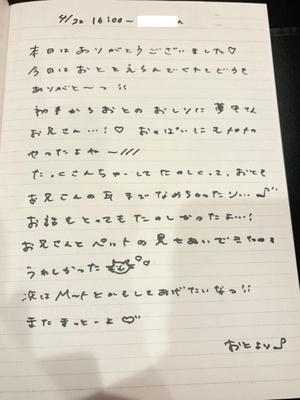 4/22 16:00~
本日はありがとうございました♡
今日はおとをえらんでくれてどうも
ありがと〜っ!!
初手からおとのおしりに夢中な
お兄さん…!♡ おっぱいにもメロメロ
やったよね〜///
たっくさんちゅーしてたのしくって、おとも
お兄さんの耳までなめちゃったり…♪
お話もとってもたのしかったよ…!
お兄さんとペットの見せあいできたのも
うれしかった
次はMットとかもしてあげたいなっ!!
またまっと〜よ♡
おとより♪